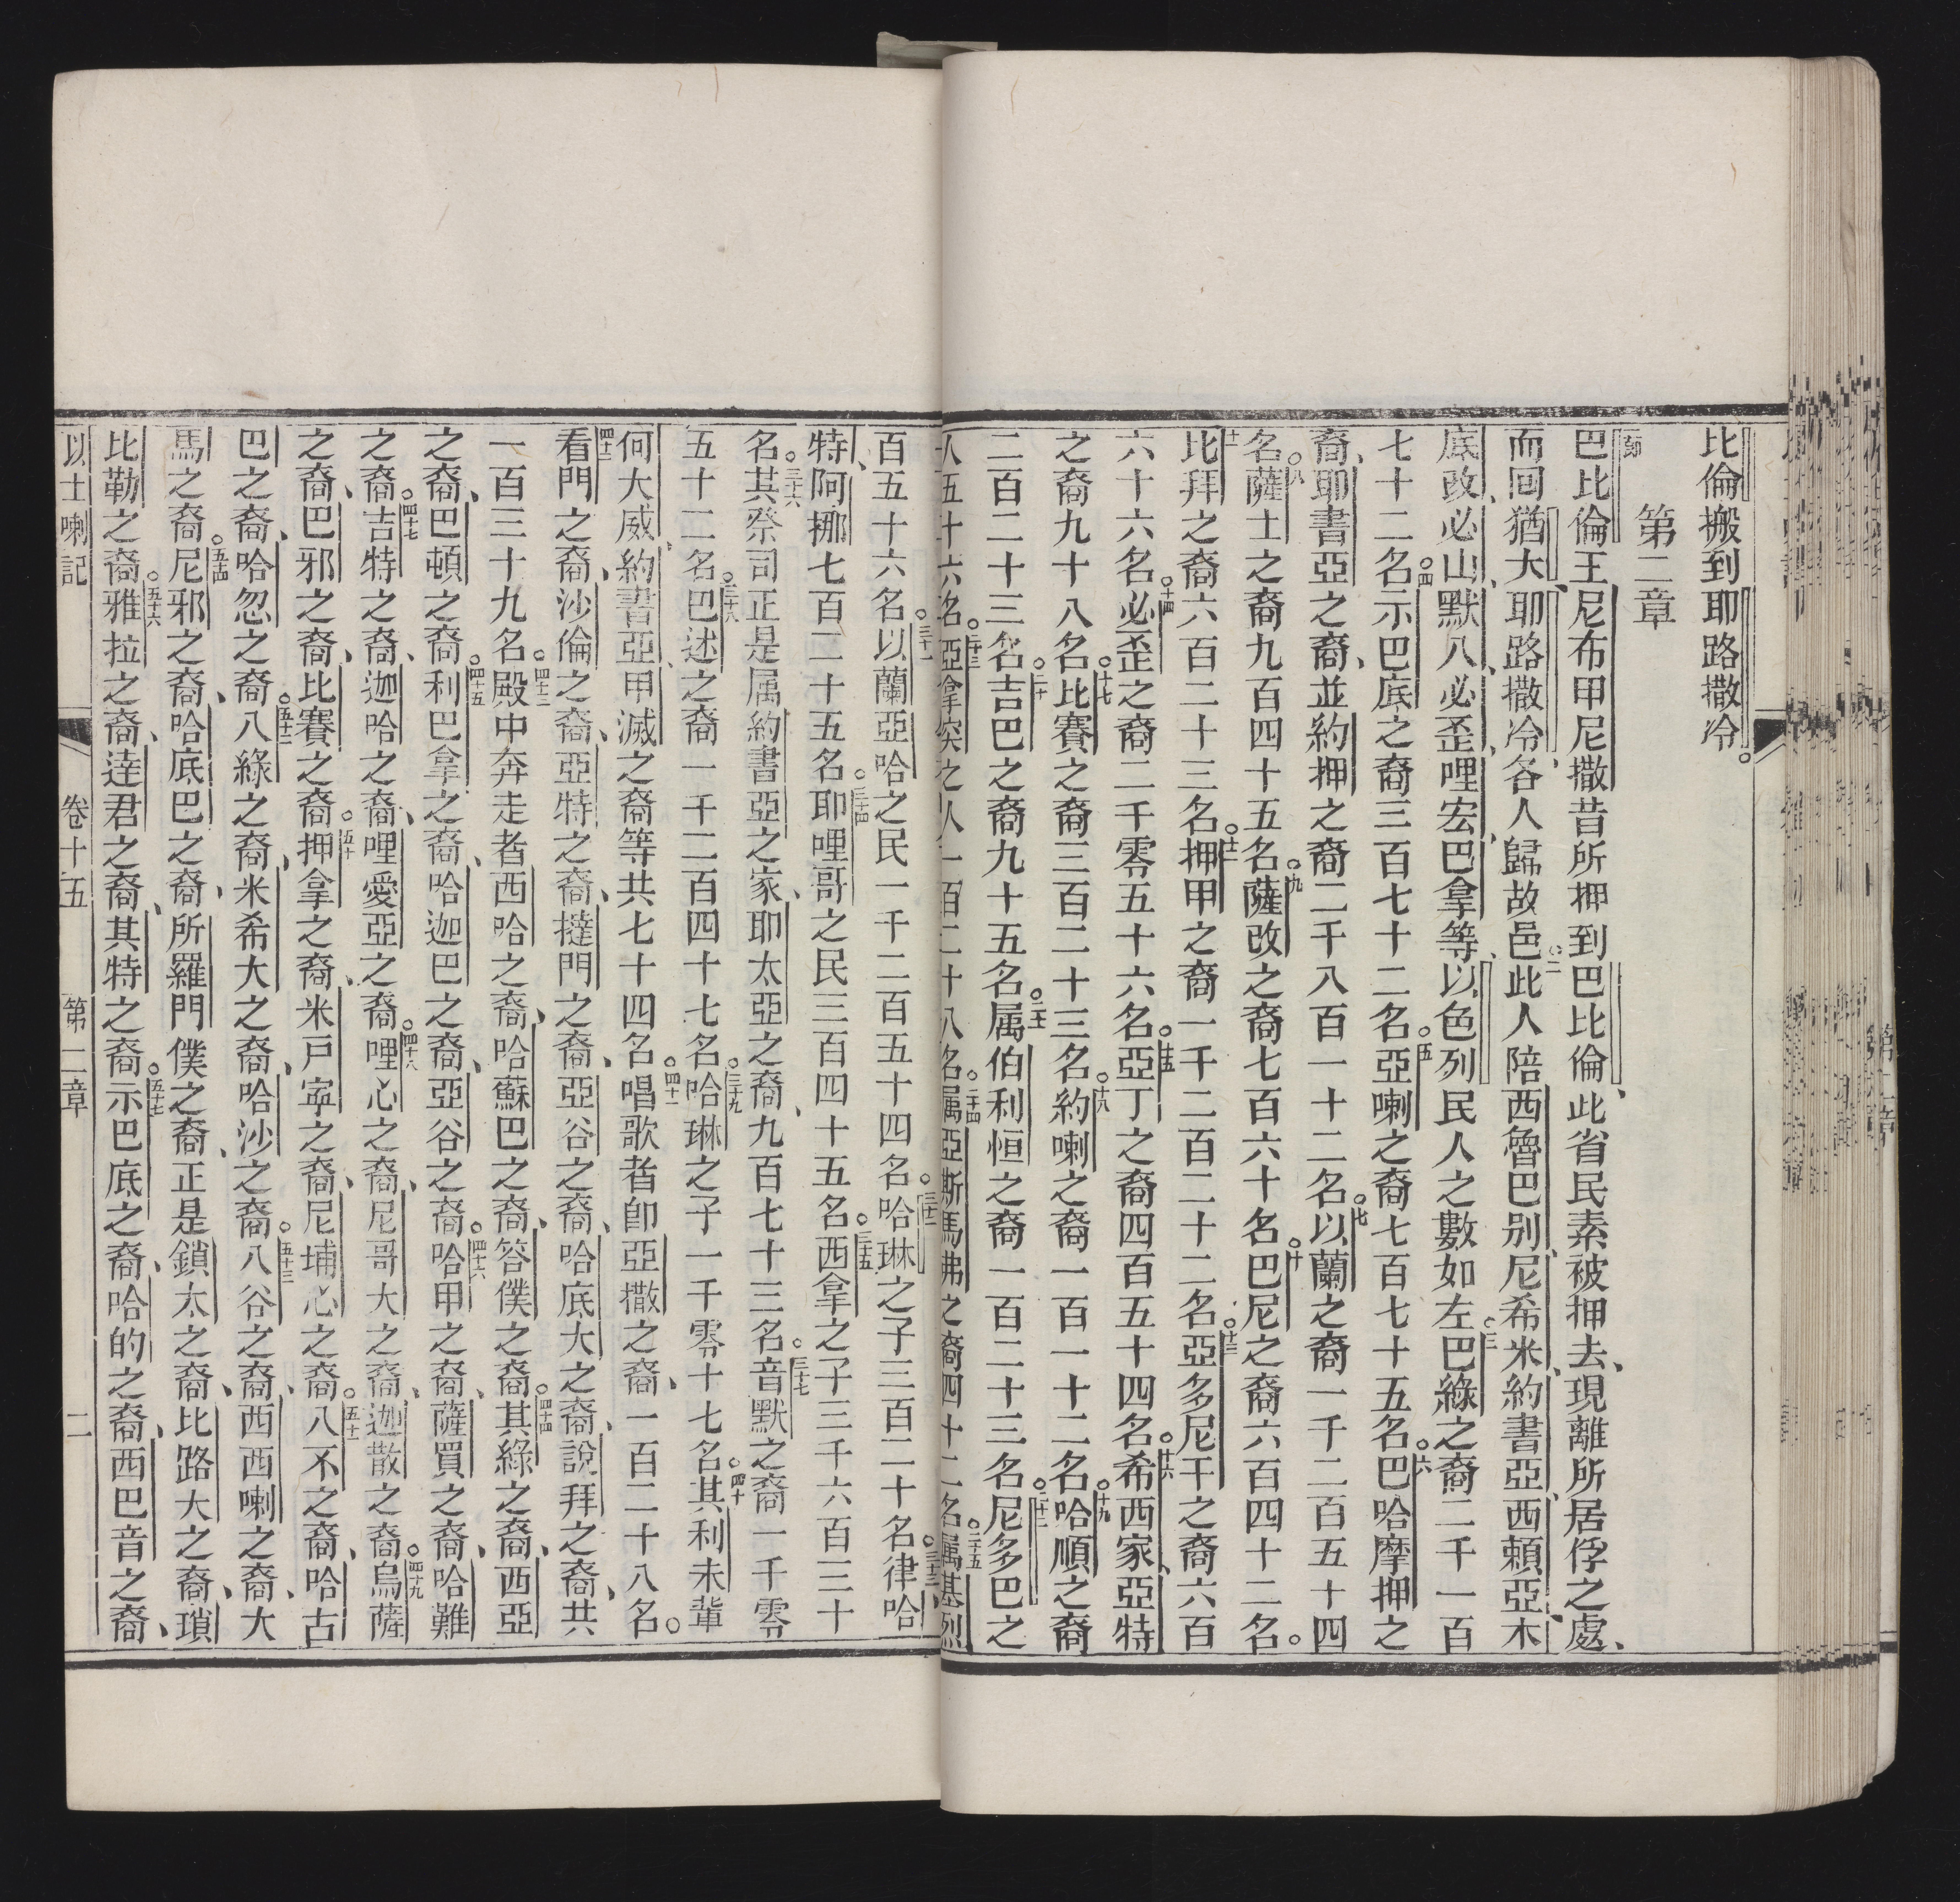 比倫搬到耶路撒冷。
第二章
巴比倫王尼布甲尼撒昔所押到巴比倫、此省民素被押去、現離所居俘之處、
而囘猶大、耶路撒冷、各人歸故邑。二此人陪西魯巴別、尼希米、約書亞、西賴亞、木
底改、必山、默八、必歪、哩宏、巴拿等、以色列民人之數如左。三巴綠之裔二千一百
七十二名。四示巴底之裔三百七十二名。五亞喇之裔七百七十五名。六巴哈摩押之
裔、耶書亞之裔、並約押之裔二千八百一十二名。七以蘭之裔一千二百五十四
名。八薩土之裔九百四十五名。九薩改之裔七百六十名。十巴尼之裔六百四十二名。
十一比拜之裔六百二十三名。十二押甲之裔一千二百二十二名。十三亞多尼干之裔六百
六十六名。十四必歪之裔二千零五十六名。十五亞丁之裔四百五十四名。十六希西家、亞特
之裔九十八名。十七比賽之裔三百二十三名。十八約喇之裔一百一十二名。十九哈順之裔
二百二十三名。二十吉巴之裔九十五名。二十一属伯利恒之裔一百二十三名。二十二尼多巴之
人五十六名。二十三亞拿突之人一百二十八名。二十四属亞斯馬弗之裔四十二名。二十五属基烈
百五十六名。三十一以蘭亞哈之民一千二百五十四名。三十二哈琳之子三百二十名。三十三律、哈
特、阿挪七百二十五名。三十四耶哩哥之民三百四十五名。三十五西拿之子三千六百三十
名。三十六其祭司正是属約書亞之家、耶太亞之裔、九百七十三名。三十七音默之裔一千零
五十二名。三十八巴述之裔一千二百四十七名。三十九哈琳之子一千零十七名。四十其利未輩
何大威、約書亞、甲滅之裔等共七十四名。四十一唱歌者卽亞撒之裔、一百二十八名。
四十二看門之裔、沙倫之裔、亞特之裔、撻門之裔、亞谷之裔、哈底大之裔、說拜之裔、共
一百三十九名。四十三殿中奔走者西哈之裔、哈蘇巴之裔、答僕之裔。四十四其綠之裔、西亞
之裔、巴頓之裔。四十五利巴拿之裔、哈迦巴之裔、亞谷之裔。四十六哈甲之裔、薩買之裔、哈難
之裔。四十七吉特之裔、迦哈之裔、哩愛亞之裔。四十八哩心之裔、尼哥大之裔、迦散之裔。四十九烏薩
之裔、巴邪之裔、比賽之裔。五十押拿之裔、米戸寧之裔、尼埔心之裔。五十一八不之裔、哈古
巴之裔、哈忽之裔。五十二八綠之裔、米希大之裔、哈沙之裔。五十三八谷之裔、西西喇之裔、大
馬之裔。五十四尼邪之裔、哈底巴之裔、所羅門僕之裔、正是鎖太之裔、比路大之裔、瑣
比勒之裔。五十六雅拉之裔、達君之裔、其特之裔。五十七示巴底之裔、哈的之裔、西巴音之裔、
以士喇記 卷十五 第二章 二